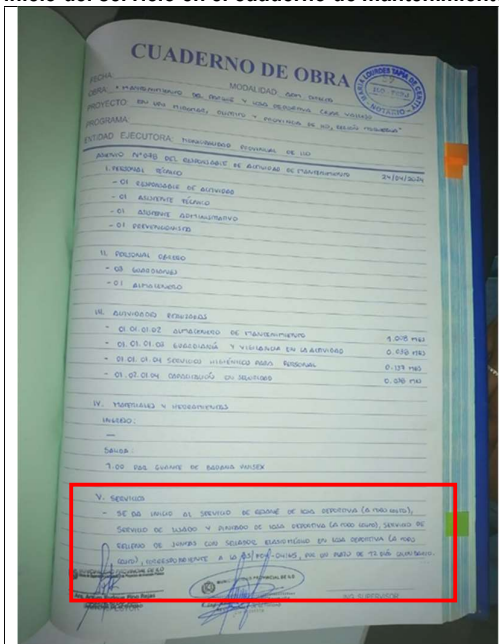 Inicio del servicio en el cuaderno de mantenimiento
CUADERNO DE OBRA
MARIA LOURDES TAPIA DE CENTY
NOTARIO
FECHA:
MODALIDAD: ADM. DIRECTA
OBRA: "MANTENIMIENTO DEL PARQUE Y LOSA DEPORTIVA CESAR VALLEJO
PROYECTO: EN UPIS MIRAMAR, DISTRITO Y PROVINCIA DE ILO, REGION MOQUEGUA"
PROGRAMA:
ENTIDAD EJECUTORA: MUNICIPALIDAD PROVINCIAL DE ILO
ASIENTO N° DEL RESPONSABLE DE ACTIVIDAD DE MANTENIMIENTO 24/04/2024
I. PERSONAL TÉCNICO
- 01 RESPONSABLE DE ACTIVIDAD
- 01 ASISTENTE TÉCNICO
- 01 ASISTENTE ADMINISTRATIVO
- 01 PREVENCIONISTA
II. PERSONAL OBRERO
- 03 GUARDIANES
- 01 ALMACENERO
III. ACTIVIDADES REALIZADAS
- 01.01.01.02 ALMACENERO DE MANTENIMIENTO MES
- 01.01.01.03 GUARDIANÍA Y VIGILANCIA EN LA ACTIVIDAD MES
- 01.01.01.04 SERVICIOS HIGIÉNICOS PARA PERSONAL MES
- 01.02.01.04 CAPACITACIÓN EN SEGURIDAD MES
IV. MATERIALES Y HERRAMIENTAS
INGRESO:
—
SALIDA:
1.00 PAR GUANTE DE BADANA UNISEX
V. SERVICIOS
- SE DA INICIO AL SERVICIO DE DE LOSA DEPORTIVA (A TODO COSTO),
SERVICIO DE LIJADO Y PINTADO DE LOSA DEPORTIVA (A TODO COSTO), SERVICIO DE
RELLENO DE JUNTAS CON SELLADOR ELASTOMÉRICO EN LOSA DEPORTIVA (A TODO
COSTO), CORRESPONDIENTE A LA POR UN PLAZO DE 12 DÍAS CALENDARIO.
MUNICIPALIDAD PROVINCIAL DE ILO
MUNICIPALIDAD PROVINCIAL DE ILO
Pino Rojas
ING. SUPERVISOR